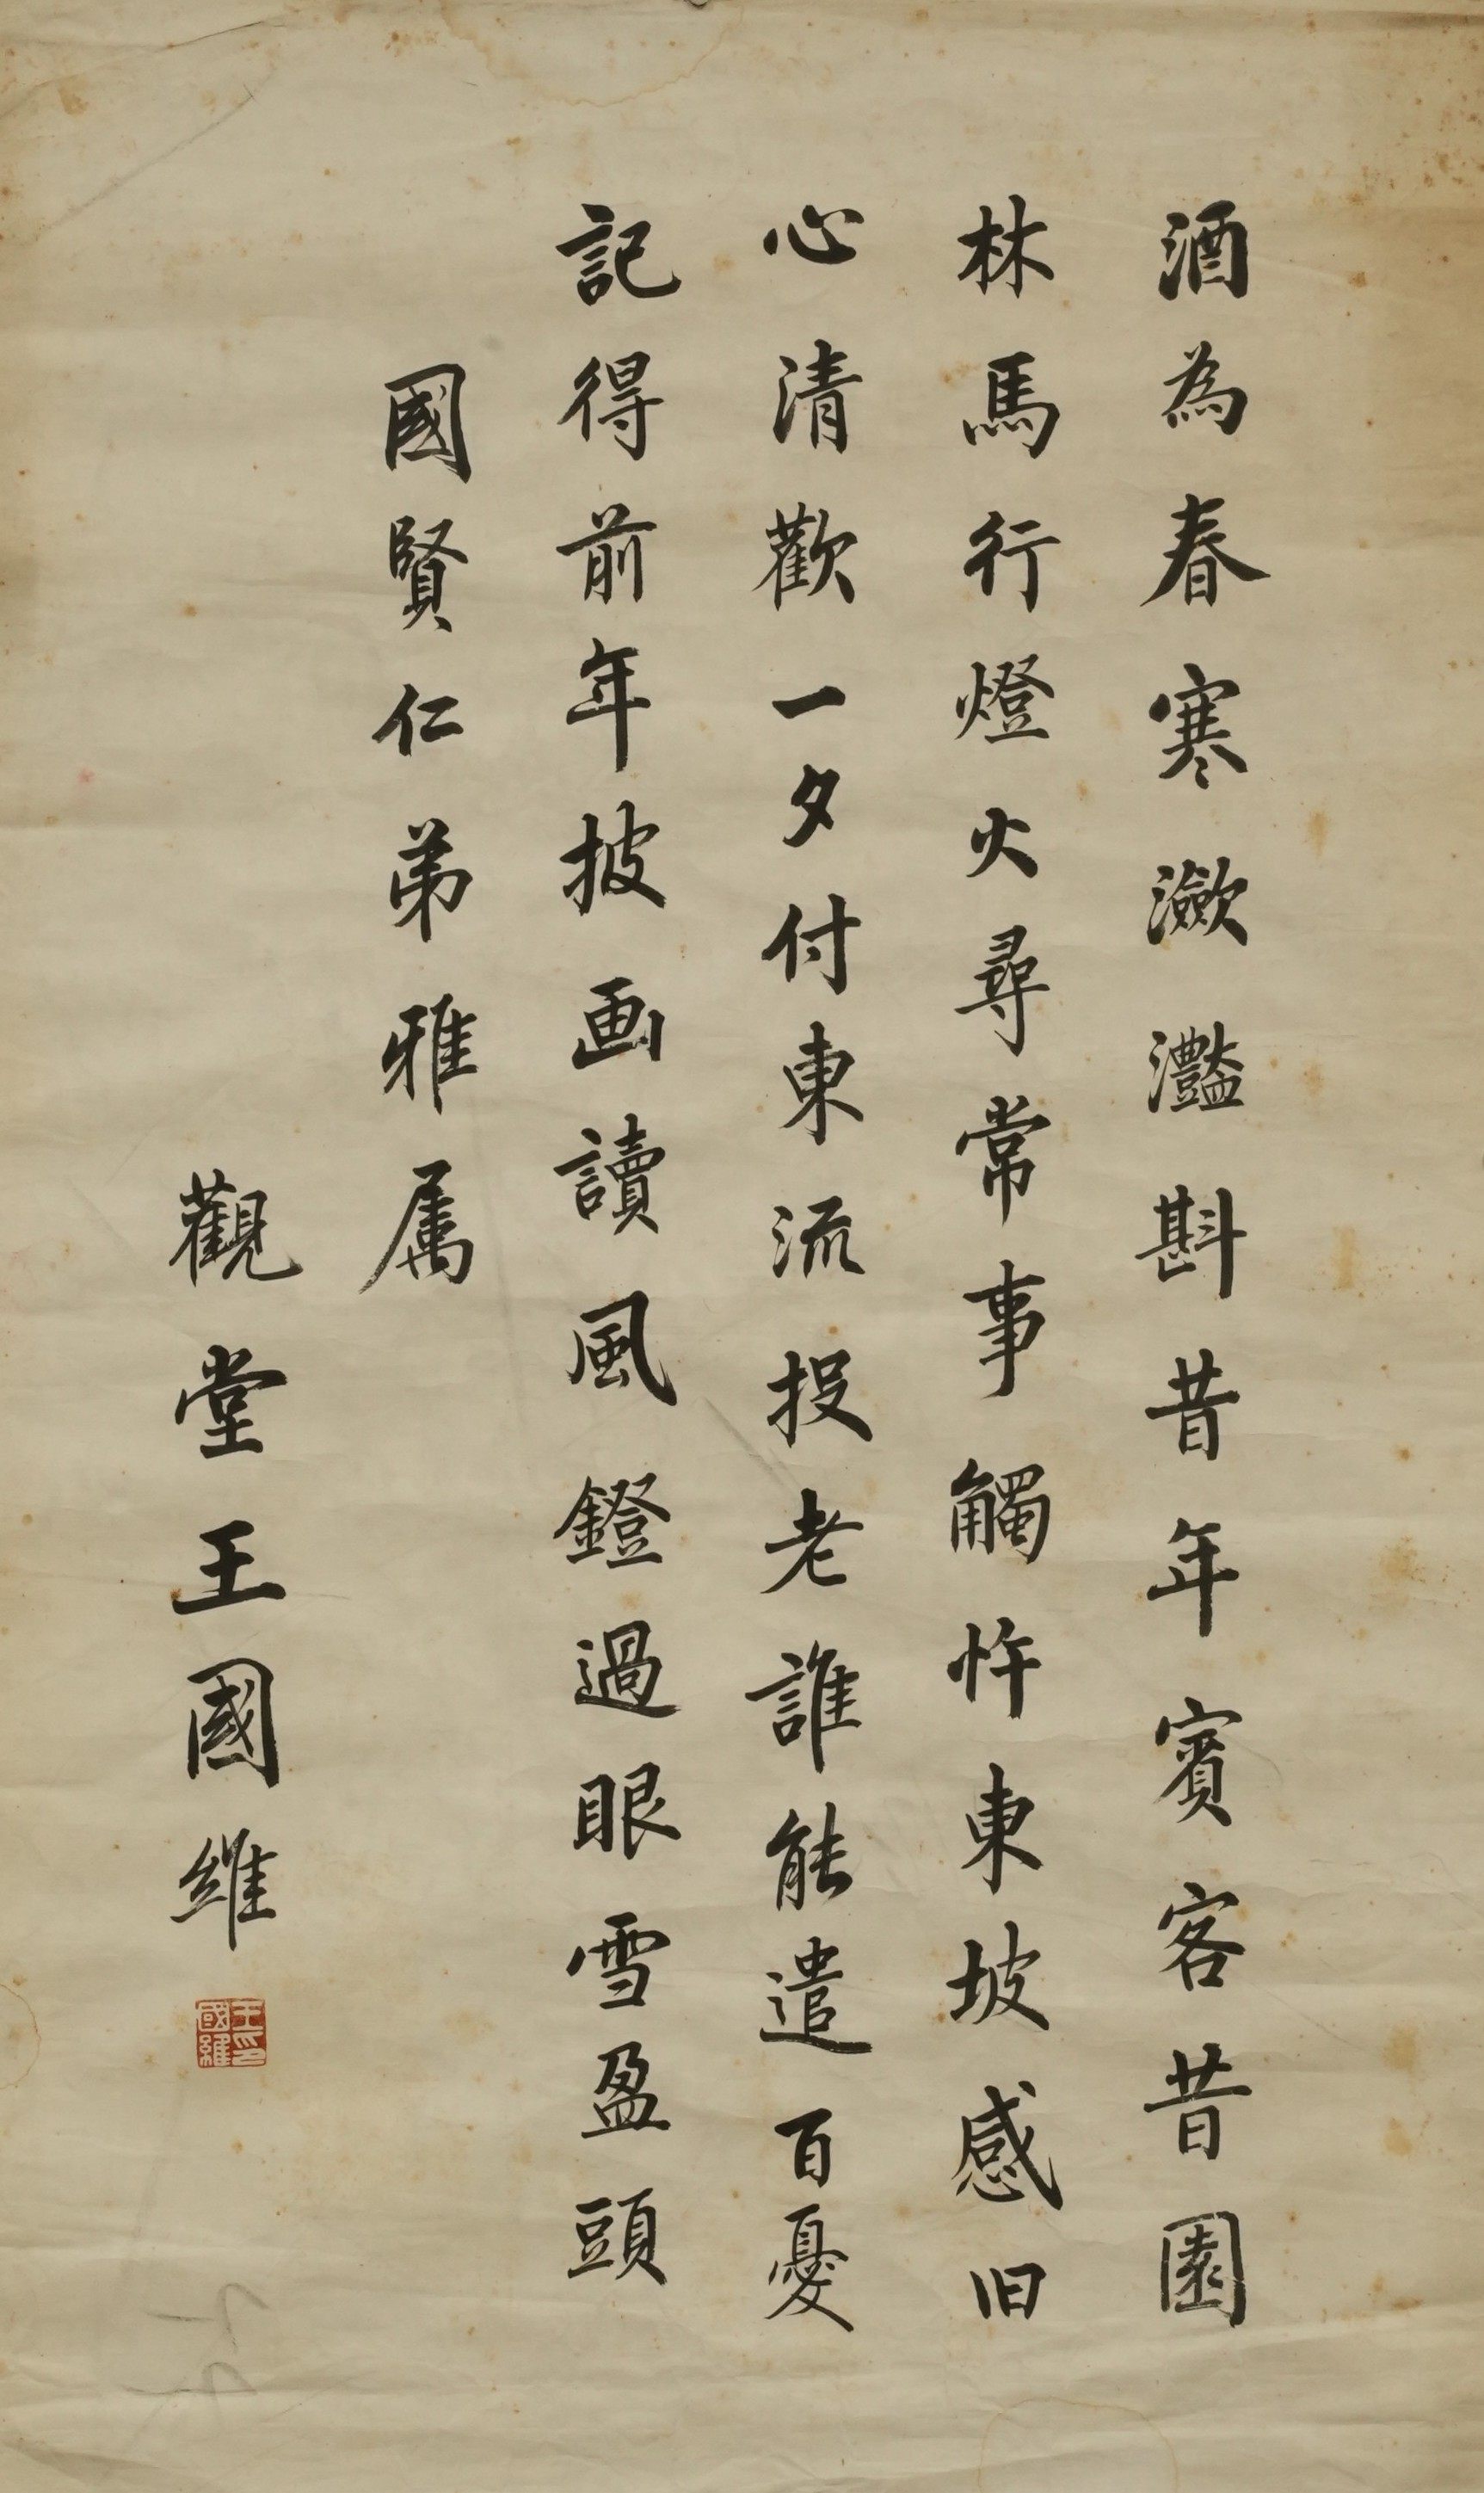 酒為春寒瀲灩斟昔年賓客昔園
林馬行燈火尋常事觸忤東坡感旧
心清歡一夕付東流投老誰能遣百憂
記得前年披画讀風鐙過眼雪盈頭
國賢仁弟雅属
觀堂王國維
王國維印